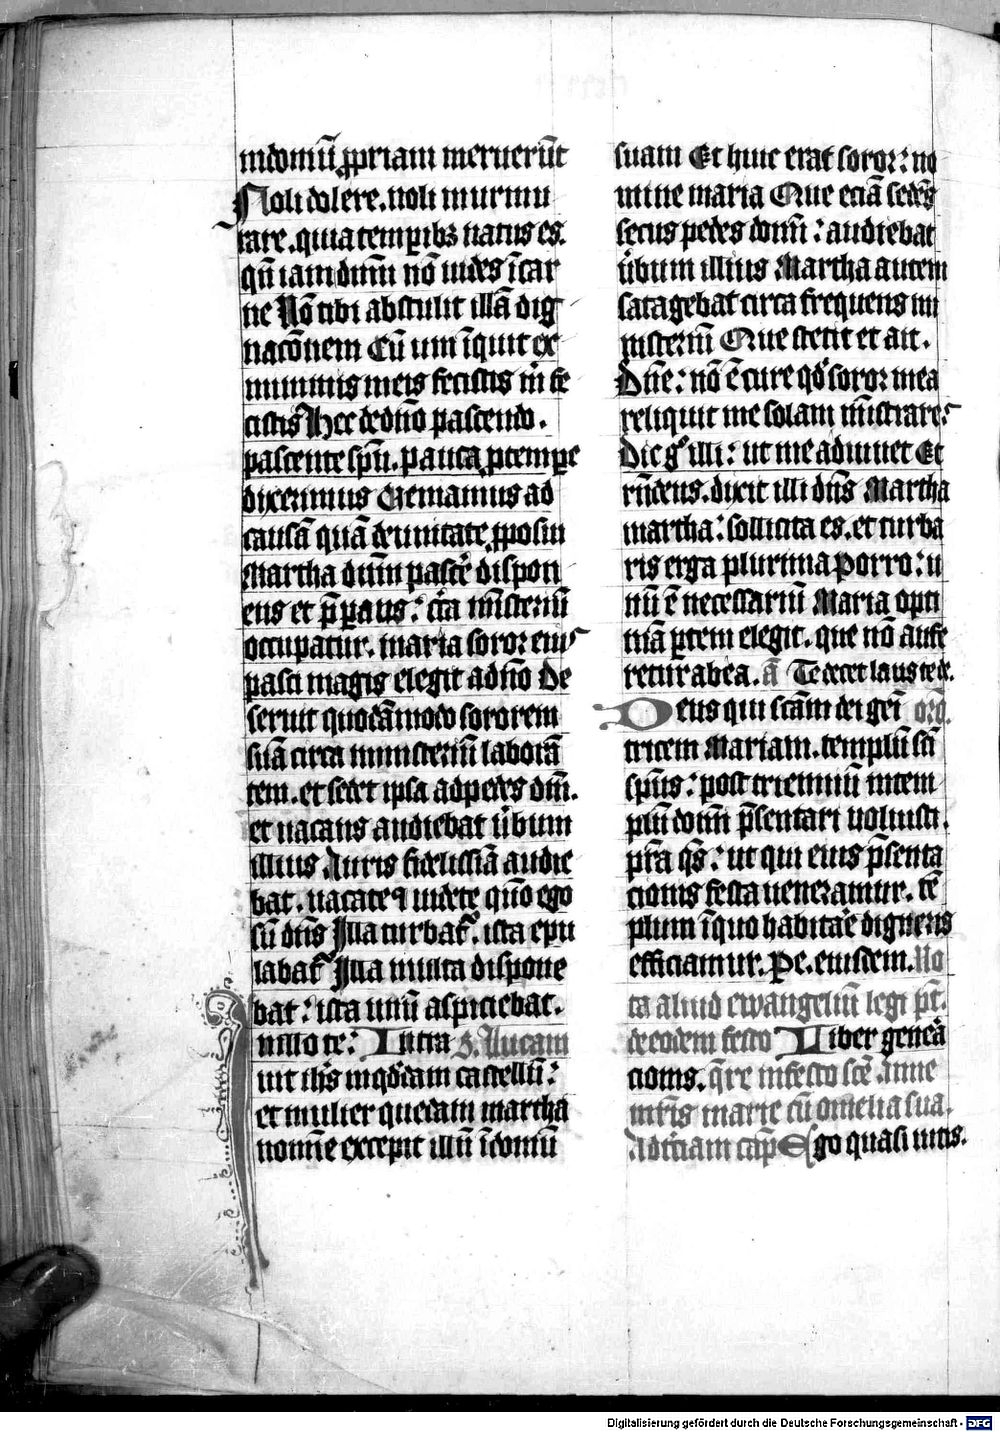 in domū ꝓpriam meruerūt
Noli dolere. noli murmu
rare. quia temꝑibꝫ natus es.
qn̄ iam dnm̄ nō uides ī car
ne Nō tibi abstulit illā dig
nacōnem Cū uni īquit ex
minimis meis fecistis m̄ fe
cistis Hec de dn̄o pascendo.
pascente sp̄u. pauca ꝑtempe
diximus Ueniamus ad
causā quā de unitate ꝓposui
Martha dnm̄ pascē dispon
ens et p̄parans: circa mīsteriū
occupatur. maria soror eius
pasci magis elegit a dn̄o De
seruit quodāmodo sororem
suā circa ministeriū laborā
tem. et sedet ipsa ad pedes dn̄i.
et uacans audiebat ūbum
illius. Auris fidelissīa audie
bat. uacate ⁊ uidete qm̄ ego
sū dn̄s Illa turbat̄. ista epu
labat̄ Illa multa dispone
bat: ista unū aspiciebat.
In illo te: Intra s. Lucam
uit ihs in qd̄dam castellū:
et mulier quedam martha
nomīe excepit illū ī domū
suam Et huic erat soror: no
mine maria Que eciā sedēs
secus pedes domī: audiebat
ūbum illius Martha autem
satagebat circa frequens mi
nisteriū Que stetit et ait.
Dn̄e: nō ē cure qd̄ soror mea
reliquit me solam mīstrare:
Dic gͦ illi: ut me adiuuet Et
rn̄dens. dixit illi dn̄s Martha
martha: sollicita es. et turba
ris erga plurima Porro: u
nū ē necessariū Maria opti
mā ꝑtem elegit. que nō aufe
retur ab ea. a Te decet laus te de.
Deus qui scām dei geni oro.
tricem Mariam. templū sci
spūs: post trienniū in tem
plū domī p̄sentari uoluisti.
pr̄a qs̄: ut qui eius p̄senta
cionis festa ueneramur. tē
plum ī quo habitare digneris
efficiamur. Pe. eiusdem. No
ta aliud ewangeliū legi pt̄.
de eodem festo Liber genea
cionis. qr̄e in festo sce Anne
mr̄is marie cū omelia sua.
Ad terciam cap̄ Ego quasi uitis.
Digitalisierung gefördert durch die Deutsche Forschungsgemeinschaft - DFG